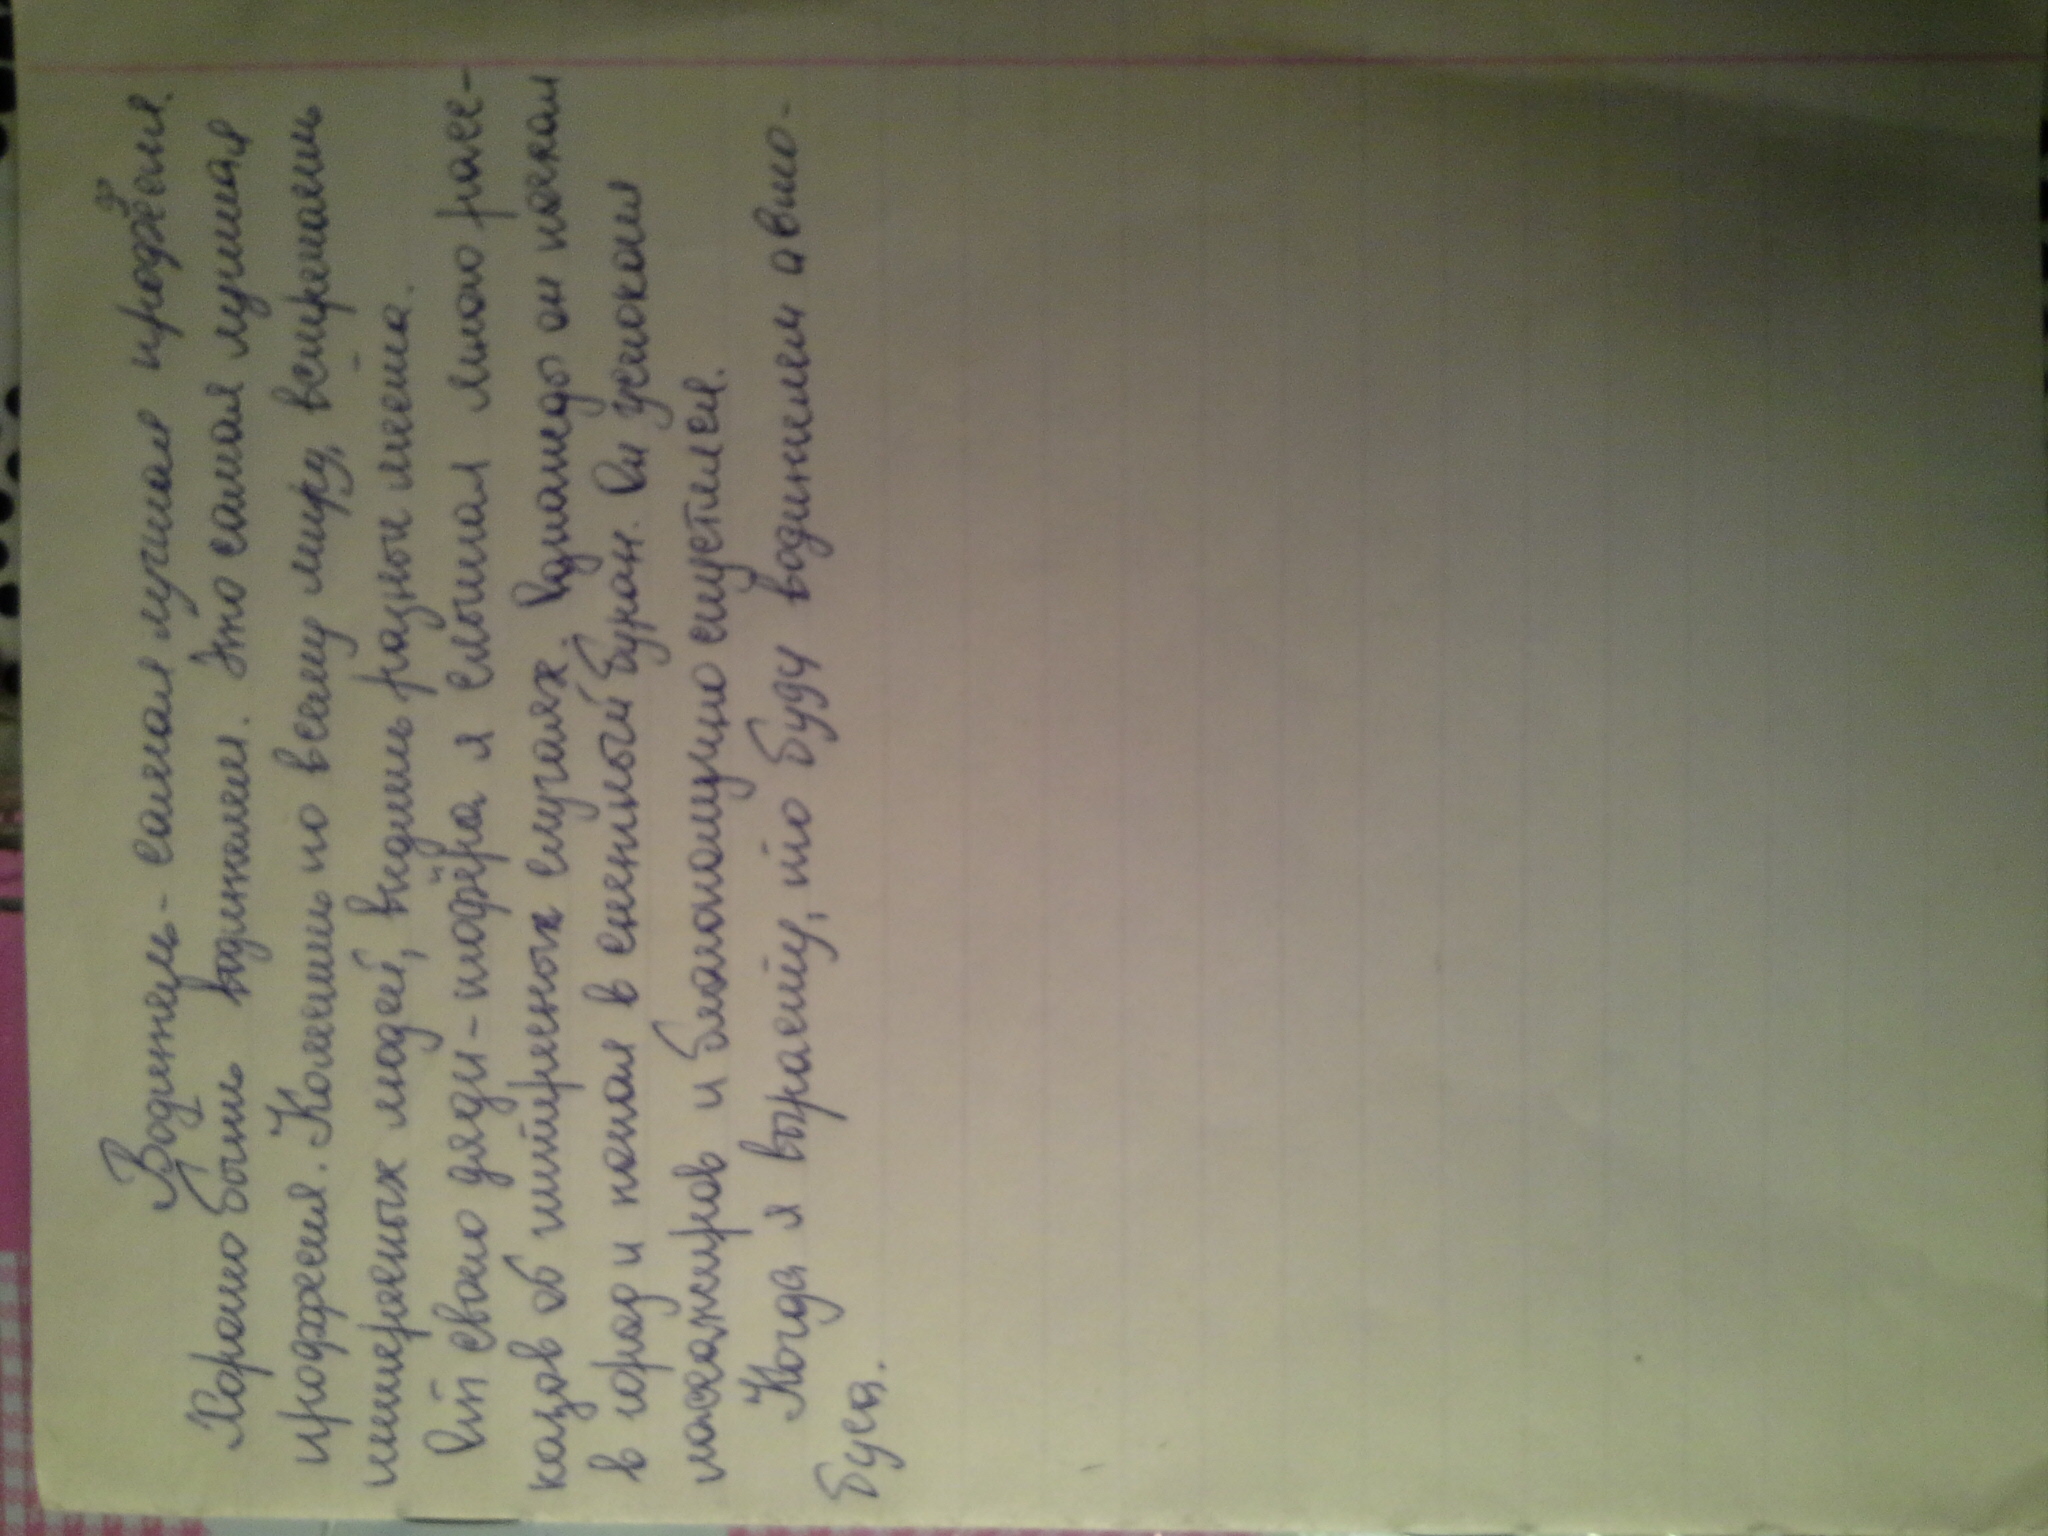 Водитель - самая лучшая профессия.
Хорошо быть водителем. Это самая лучшая
профессия. Колесишь по всему миру, встречаешь
интересных людей, видишь разные места.
От своего дяди - шофёра я слышал много расс-
казов об интересных случаях. Однажды он поехал
в город и попал в снежный буран. Он успокоил
пассажиров и благополучно спустился.
Когда я вырасту, то буду водителем авто-
буса.